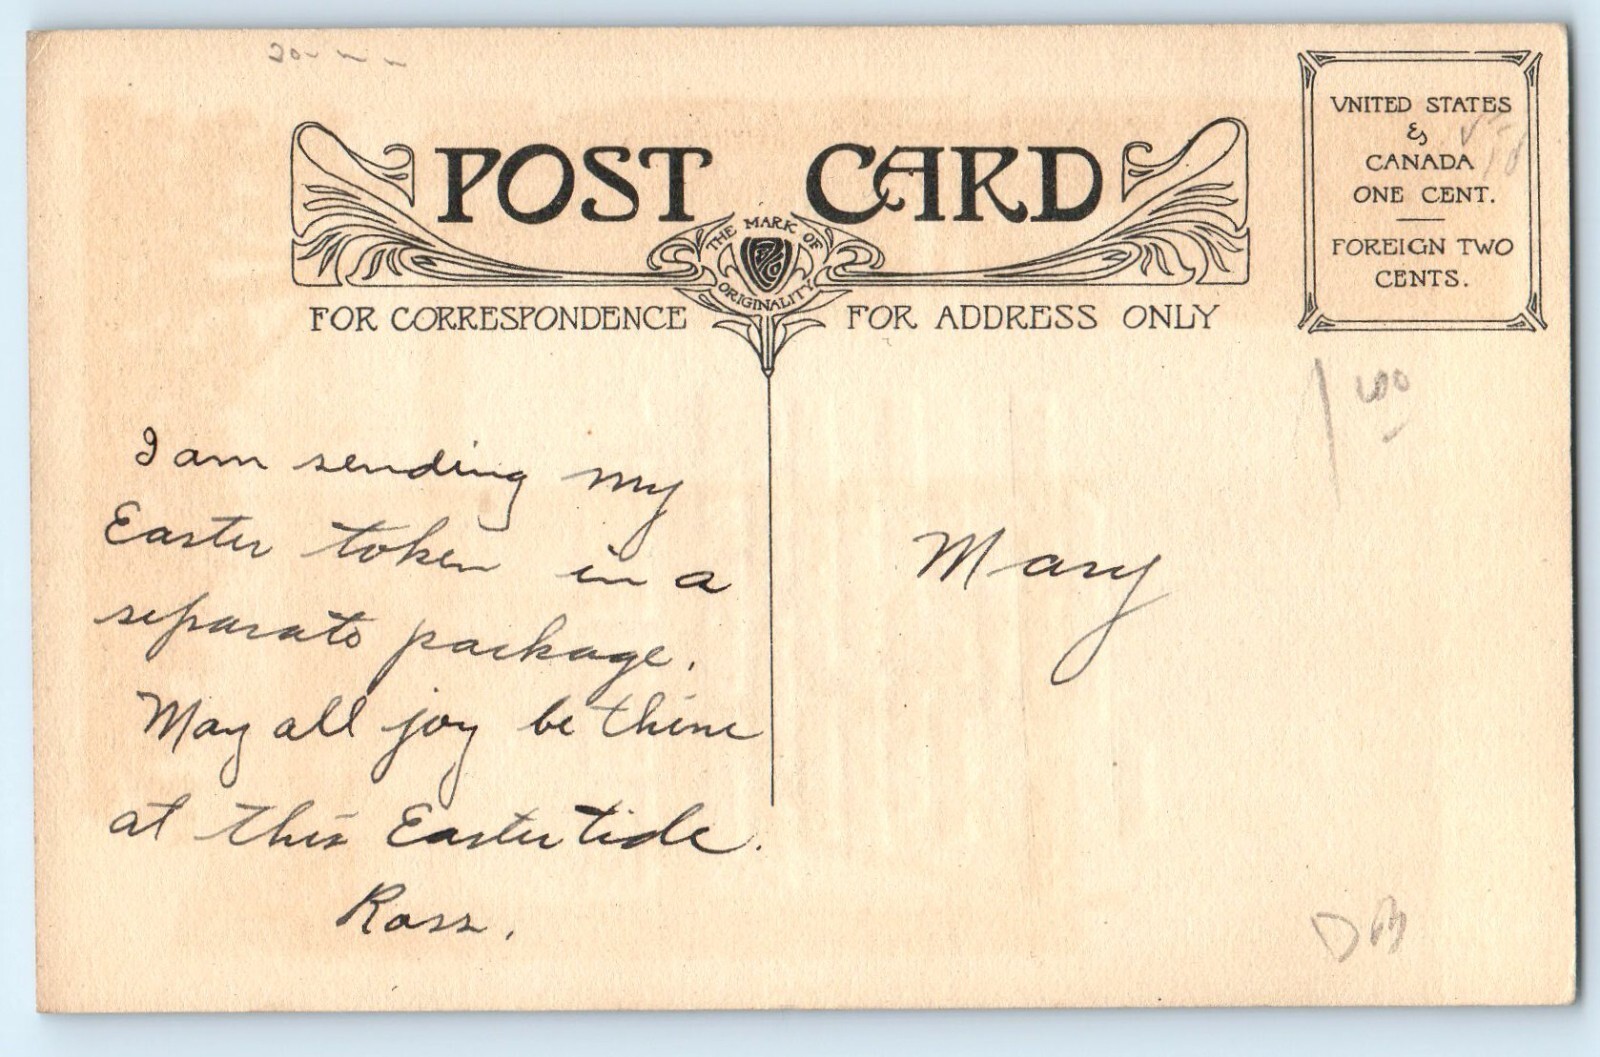 POST CARD
THE MARK OF
ORIGINALITY
FOR CORRESPONDENCE
FOR ADDRESS ONLY
UNITED STATES
&
CANADA
ONE CENT.
FOREIGN TWO
CENTS.
I am sending my
Easter token in a
separate package.
May all joy be thine
at this Eastertide.
Ross.
Mary
DB